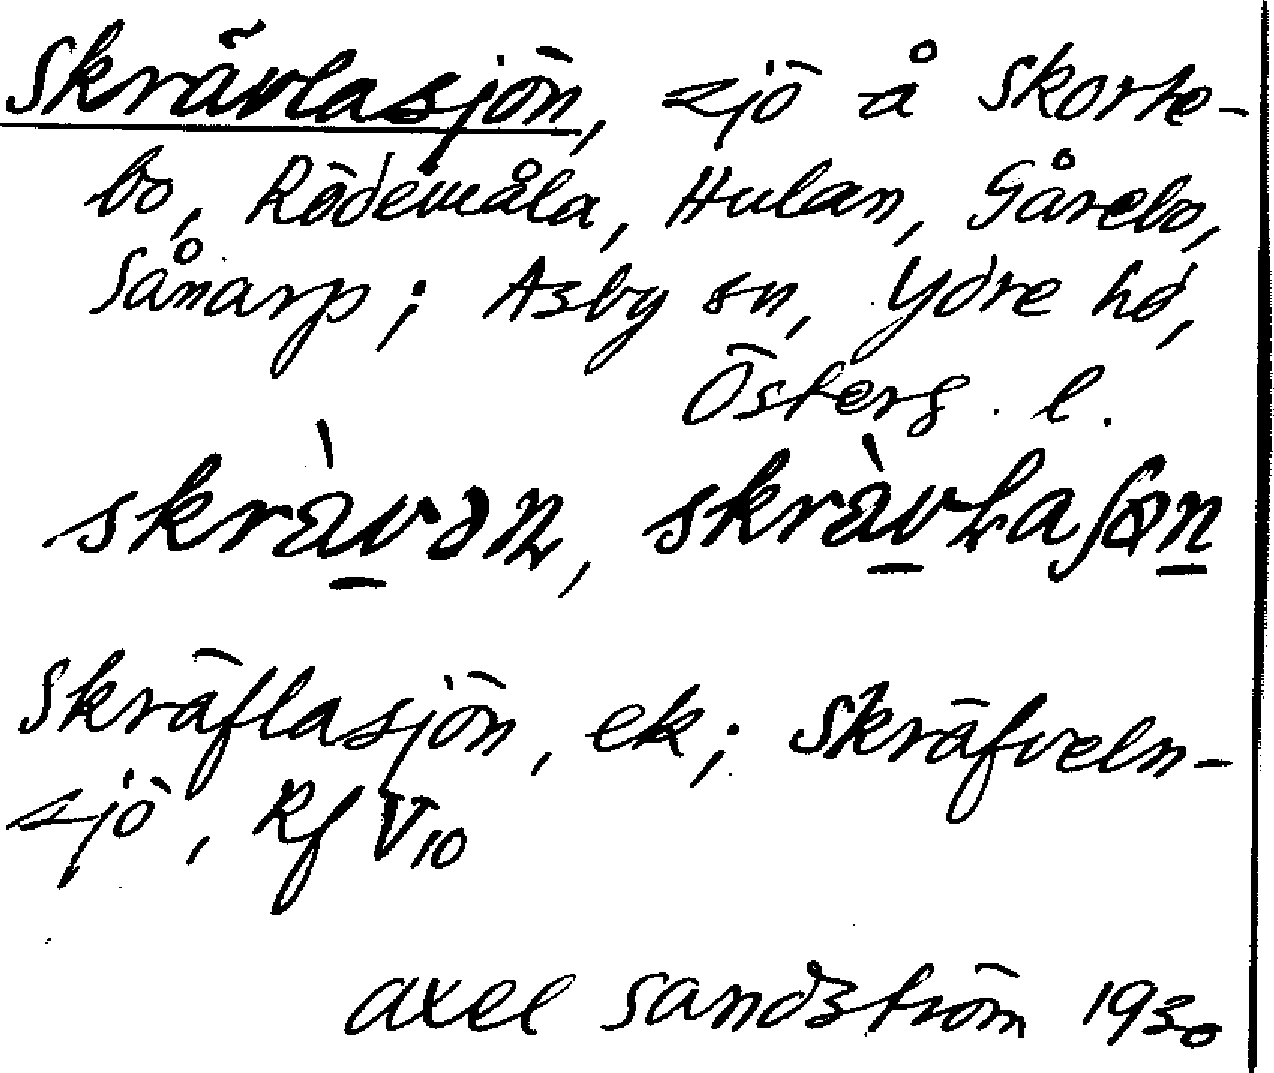 Skrävlasjön, sjö å Skorte-
bo, Rödemåla, Hulan, Gårebo,
Sånarp; Asby sn, Ydre hd,
Österg. l.
Skräflasjön, ek; Skräfveln-
sjö, Rf V10
Axel Sandström 1930